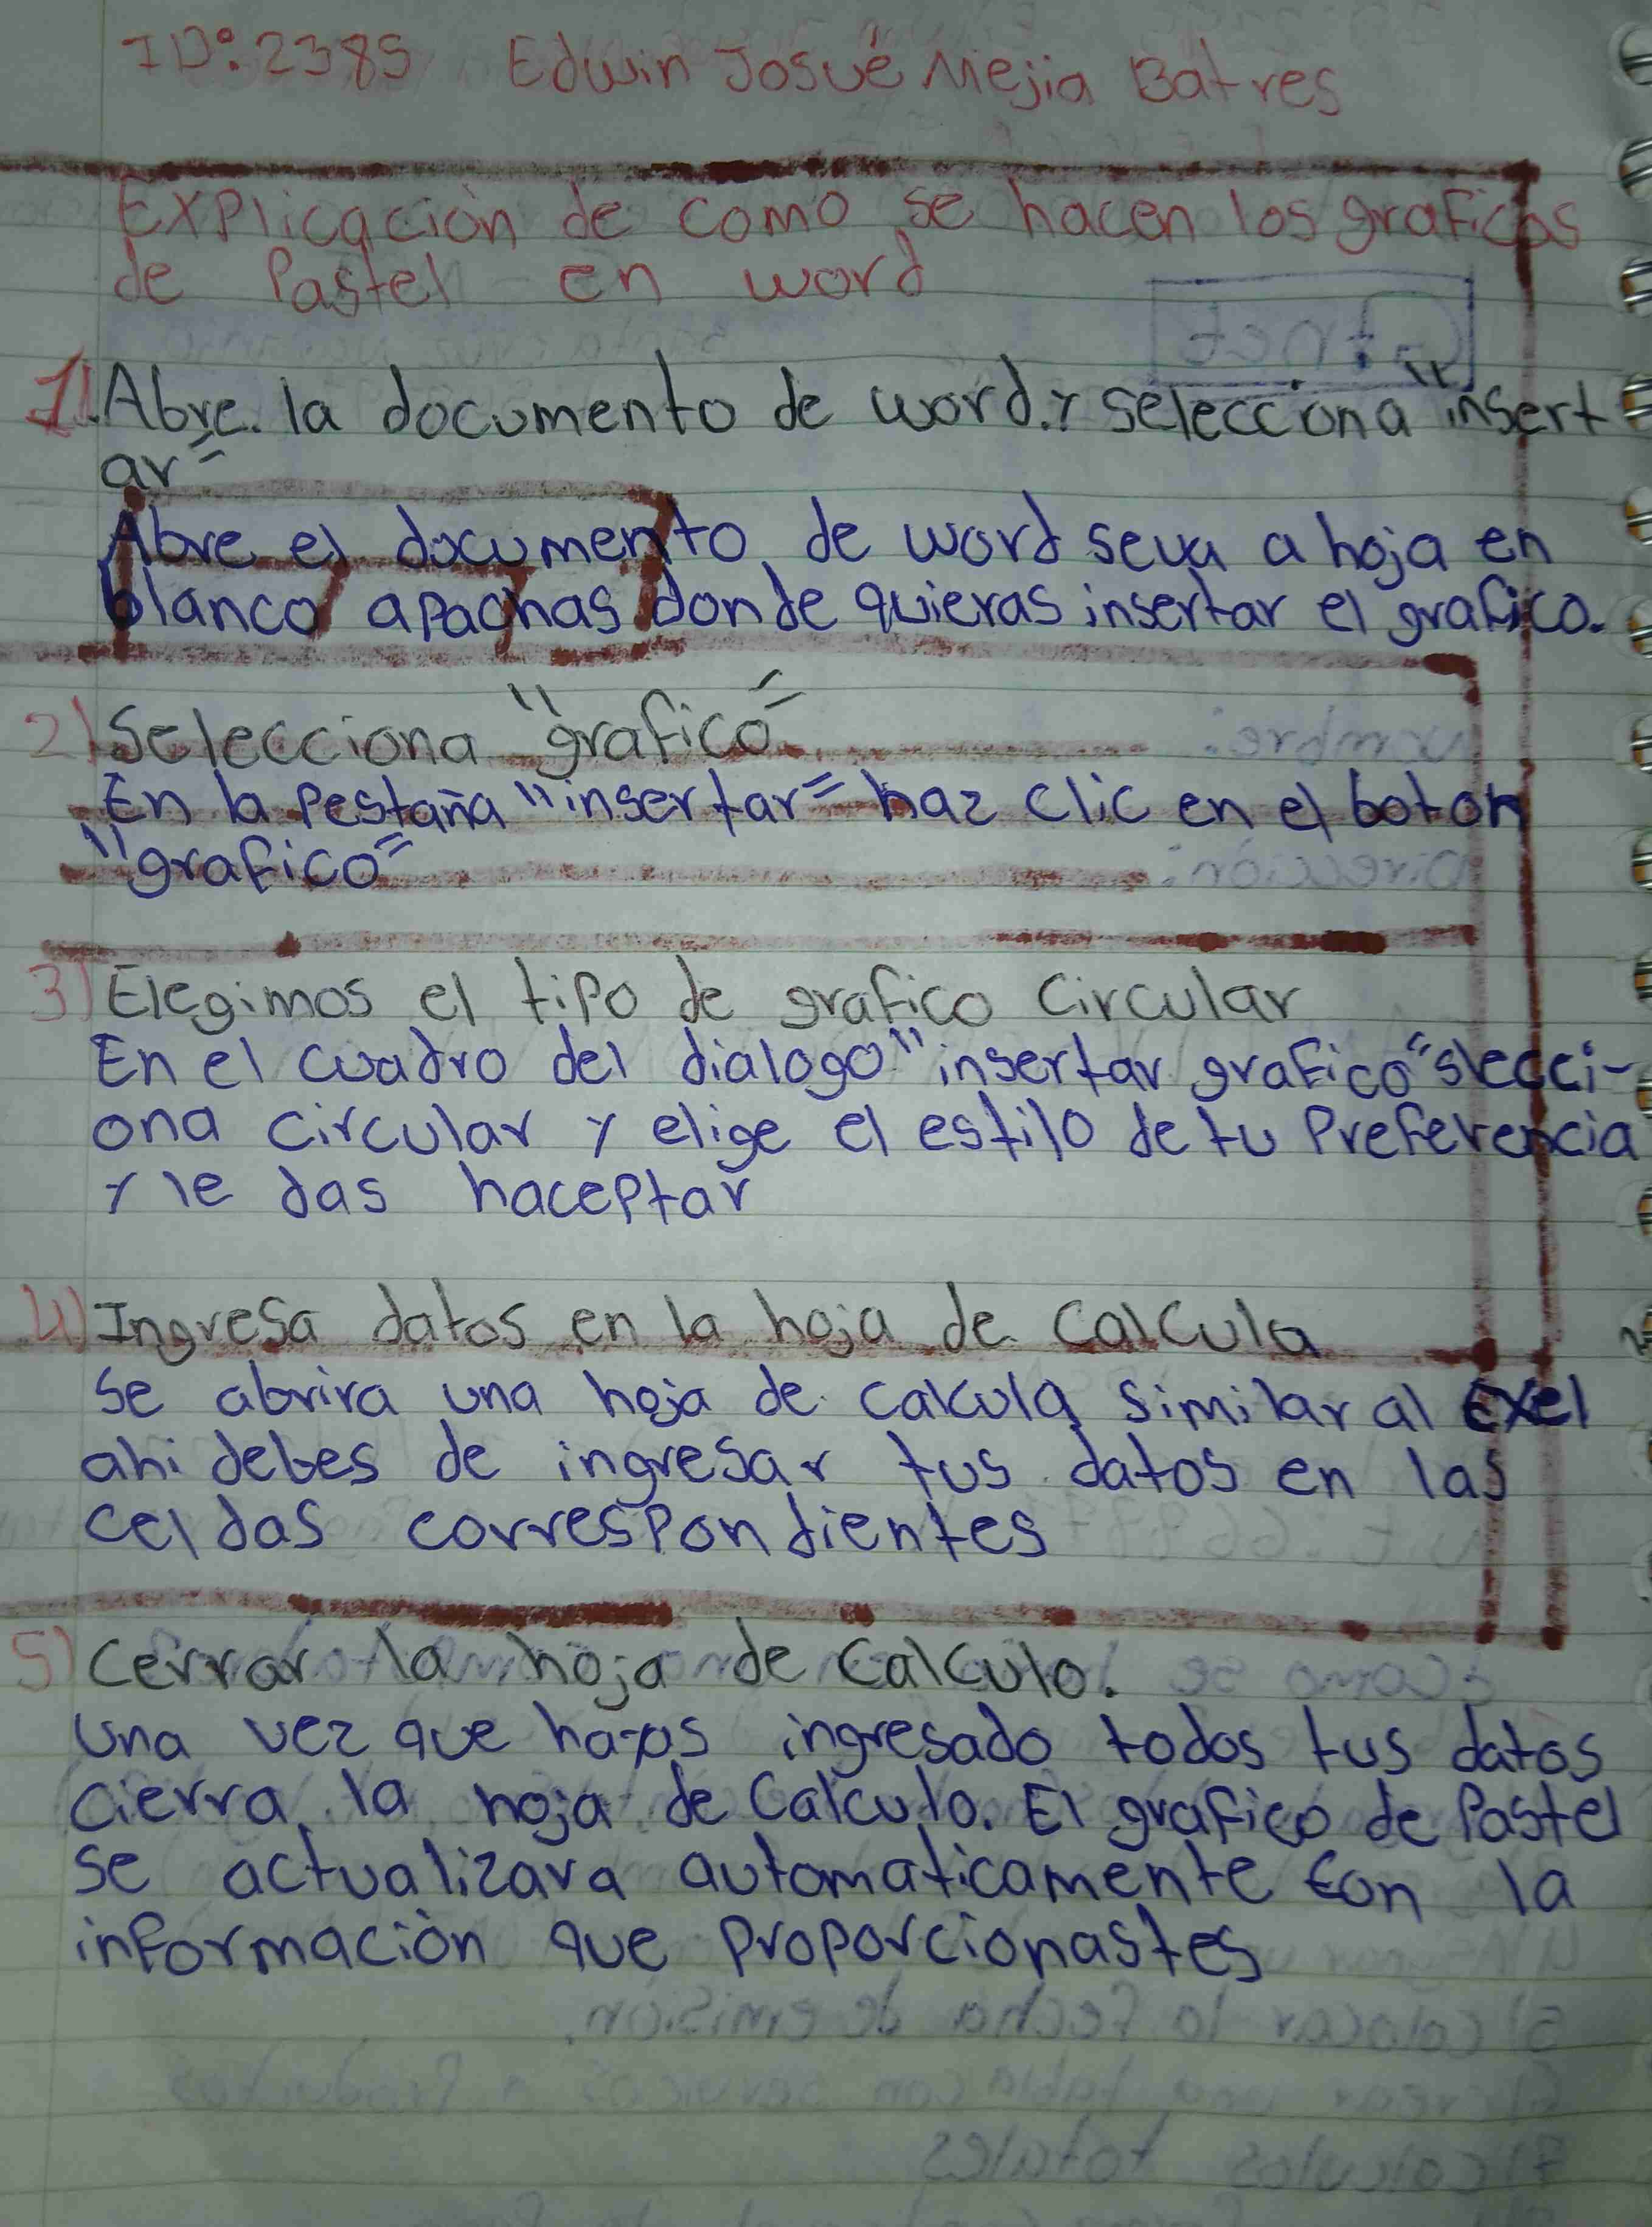 ID: 2385 Edwin Josué Mejia Batres
Explicación de como se hacen los graficos
de Pastel en word
1). Abre. la documento de word. y selecciona "insert
ar"
Abre el documento de word seva a hoja en
blanco apachas donde quieras insertar el grafico.
2) Selecciona "grafico"
En la Pestaña "insertar" haz clic en el boton
"grafico"
3) Elegimos el tipo de grafico Circular
En el cuadro del dialogo "insertar grafico" slecci-
ona circular y elige el estilo de tu Preferencia
y le das haceptar
4) Ingresa datos en la hoja de calcula
Se abrira una hoja de calcula similar al Exel
ahi debes de ingresar tus datos en las
celdas correspondientes
5) Cerrar la hoja de calculo.
Una vez que hayas ingresado todos tus datos
cierra la hoja de Calculo. El grafico de Pastel
se actualizara automaticamente con la
información que proporcionastes